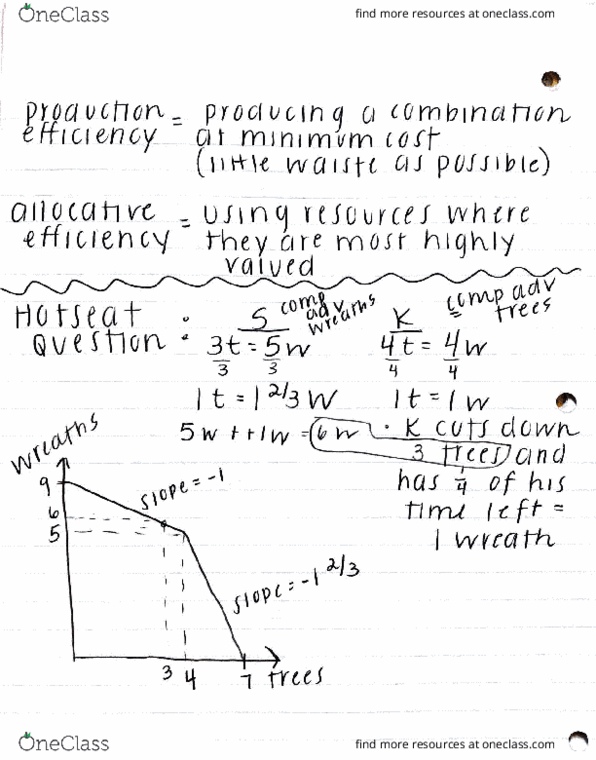 OneClass find more resources at oneclass.com
production = producing a combination
efficiency at minimum cost
(little waiste as possible)
allocative = using resources where
efficiency they are most highly
valued
Hotseat Question :
S comp adv wreaths
3t = 5w
3 3
1t = 1 2/3 W
K comp adv trees
4t = 4w
4 4
1t = 1w
5w + 1w = 6w
• K cuts down
3 trees and
has 1/4 of his
time left =
1 wreath
wreaths
9
6
5
slope = -1
slope = -1 2/3
3 4 7 trees
OneClass find more resources at oneclass.com